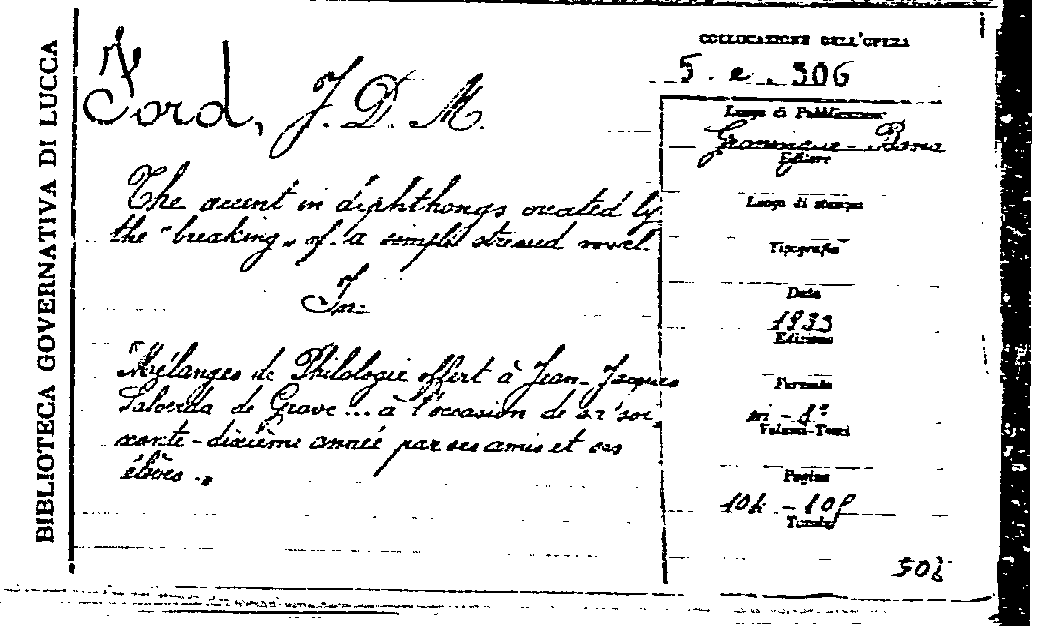 BIBLIOTECA GOVERNATIVA DI LUCCA
Ford, J. D. M.
The accent in diphthongs created by
the "breaking" of a simple stressed vowel.
In:
Mélanges de Philologie offert à Jean-Jacques
Salverda de Grave... à l'occasion de sa soi-
xante-dixième année par ses amis et ses
élèves.
COLLOCAZIONE DELL'OPERA
5. e. 306
Luogo di Pubblicazione
Groningue -
Editore
Luogo di stampa
Tipografia
Data
1933
Edizione
Formato
in-8°
Volumi-Tomi
Pagine
Tavole